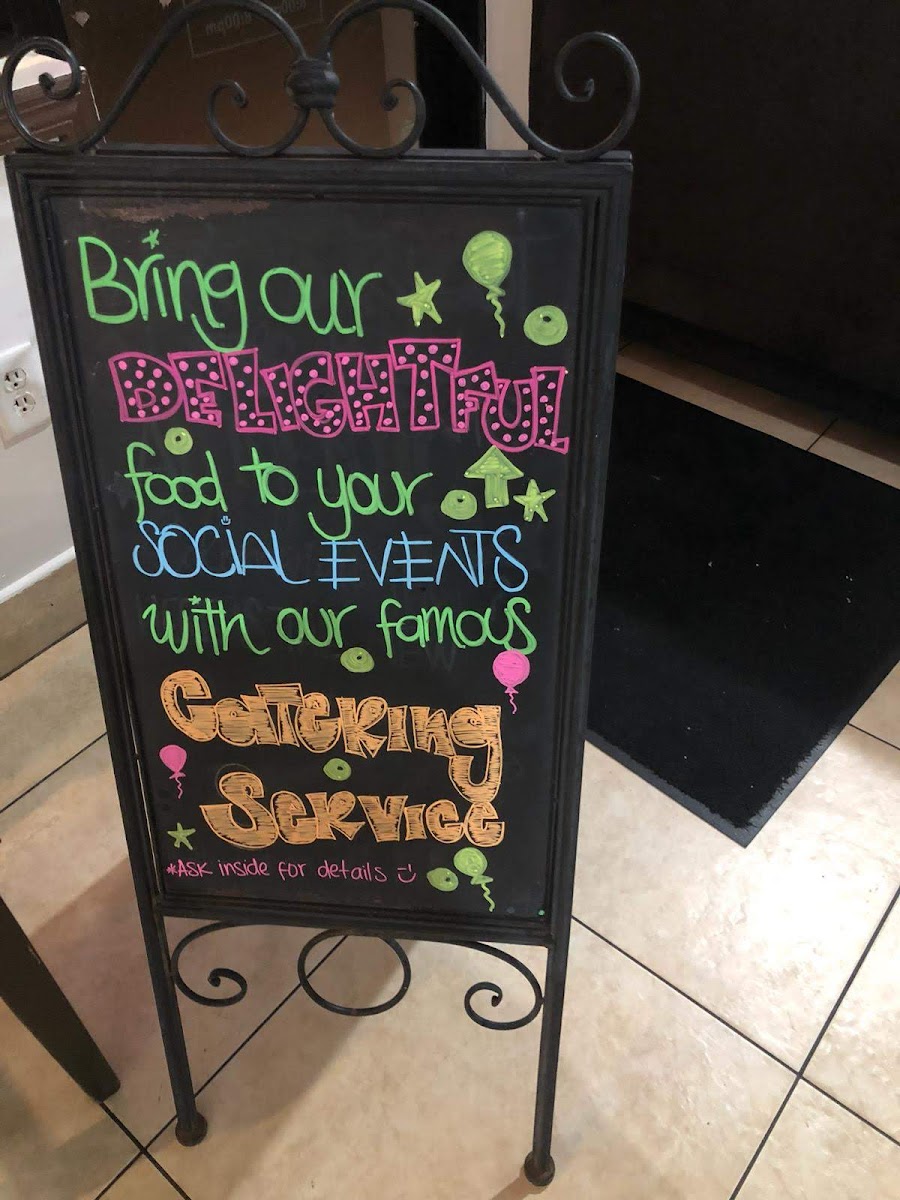 Bring our
DELIGHTFUL
food to your
SOCIAL EVENTS
with our famous
Catering
Service
*ASK inside for details